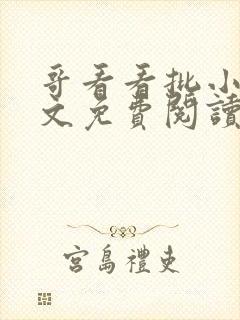 哥看看批小
文免費閱讀
宮島禮吏